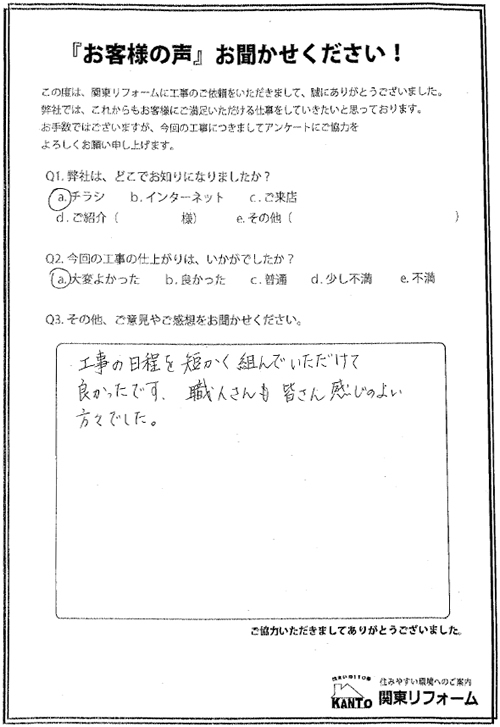 『お客様の声』お聞かせください！
この度は、関東リフォームに工事のご依頼をいただきまして、誠にありがとうございました。
弊社では、これからもお客様にご満足いただける仕事をしていきたいと思っております。
お手数ではございますが、今回の工事につきましてアンケートにご協力を
よろしくお願い申し上げます。
Q1. 弊社は、どこでお知りになりましたか？
a. チラシ b. インターネット c. ご来店
d. ご紹介（ 様） e. その他（ ）
Q2. 今回の工事の仕上がりは、いかがでしたか？
a. 大変よかった b. 良かった c. 普通 d. 少し不満 e. 不満
Q3. その他、ご意見やご感想をお聞かせください。
工事の日程を短かく組んでいただけて
良かったです. 職人さんも皆さん感じのよい
方々でした。
ご協力いただきましてありがとうございました。
住まいの110番
住みやすい環境へのご案内
KANTO 関東リフォーム